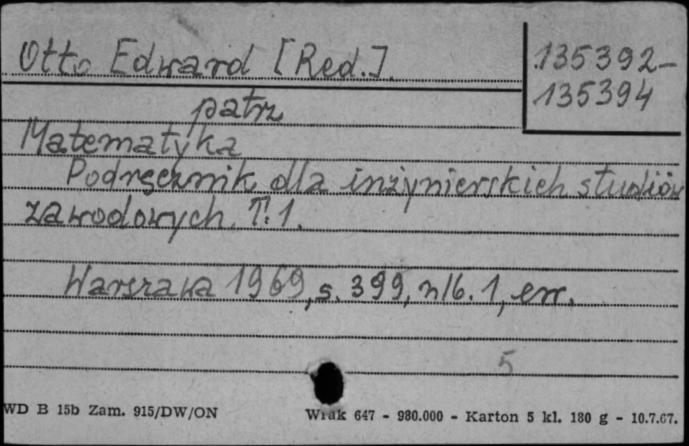 Otto Edward [Red.].
135392-
135394
patrz
Matematyka
Podręcznik dla inżynierskich studiów
zawodowych. T. 1.
Warszawa 1969, s. 399, nlb. 1, err.
5
WD B 15b Zam. 915/DW/ON
Wrak 647 - 980.000 - Karton 5 kl. 180 g - 10.7.67.